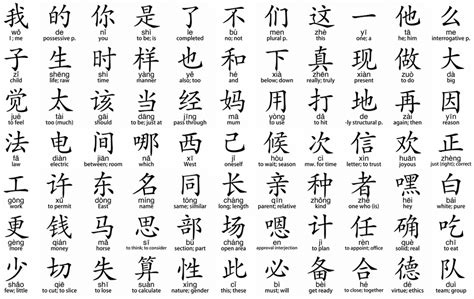 我 的 你 是 了 不 们 这 一 他 么
wǒ de nǐ shì le bù men zhè yī tā me
I; me possessive p. you to be; is completed no; not plural p. this one; a he; him interrogative p.
子 生 时 样 也 和 下 真 现 做 大
zǐ shēng shí yàng yě hé xià zhēn xiàn zuò dà
child life; raw time manner also; too and below; down really; truly present to do big
觉 太 该 当 经 妈 用 打 地 再 因
jué tài gāi dāng jīng mā yòng dǎ de zài yīn
to feel too (much) should to be; just at pass through mum to use to hit -ly structural p. again; then reason
法 电 间 哪 西 己 候 次 信 欢 正
fǎ diàn jiān nǎ xī jǐ hòu cì xìn huān zhèng
law electric between; room which West oneself to wait; season mw. for time letter; to trust joyous just (right); correct
工 许 东 名 同 长 亲 种 者 嘿 白
gōng xǔ dōng míng tóng cháng qīn zhǒng zhě hēi bái
work to permit East name same; similar long; grow parent; relative kind one who (is) hey white; pure
更 钱 马 思 部 场 嗯 计 任 确 吃
gèng qián mǎ sī bù chǎng èn jì rèn què chī
more money horse to think; to consider section; part open area approval interjection to plan to appoint; office solid; real to eat
少 切 失 算 性 此 必 备 合 德 队
shǎo qiē shī suàn xìng cǐ bì bèi hé dé duì
few; little to cut; to slice to lose to calculate nature; gender this; these must get ready to close; together virtue; ethics team; group